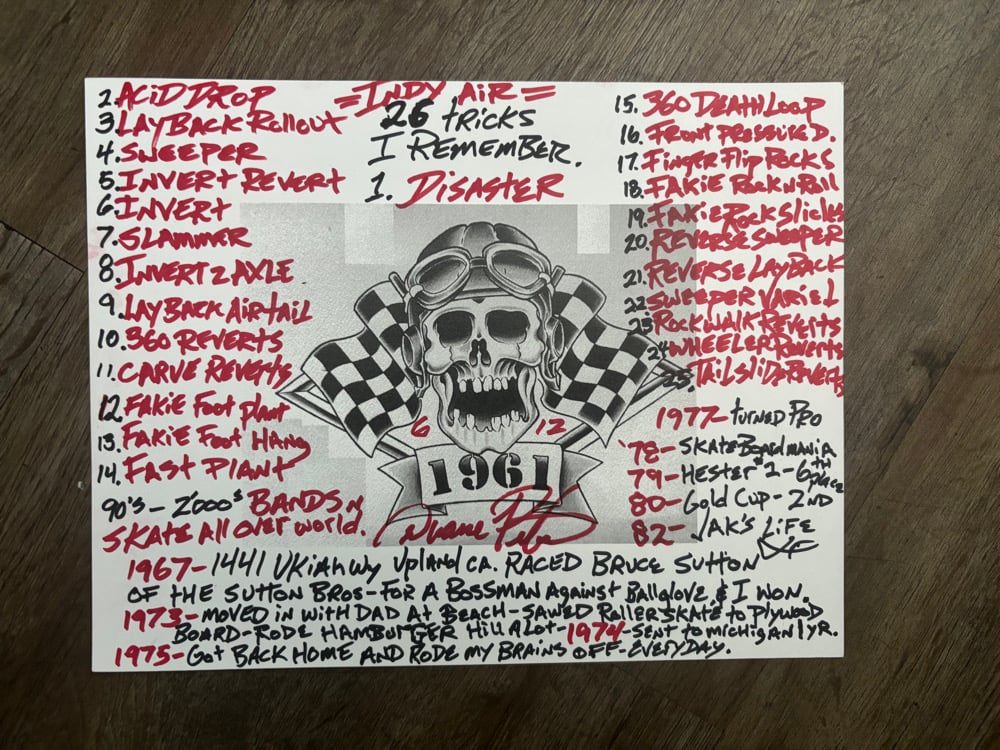 =INDY AIR=
26 tricks
I REMEMBER.
1. DISASTER
2. ACID DROP
3. LAYBACK Rollout
4. SWEEPER
5. INVERT REVERT
6. INVERT
7. SLAMMER
8. INVERT 2 AXLE
9. LAYBACK Air tAiL
10. 360 REVERTS
11. CARVE REVERTS
12 FAKIE Foot plant
13. FAKIE Foot HANG
14. FAST PLANT
15. 360 DEATH Loop
16. FRONT PRESSURE D.
17. Finger Flip Rocks
18. FAKIE Rock N Roll
19. FAKIE Rock Slides
20. REVERSE SWEEPER
21. REVERSE LAYBACK
22 SWEEPER VARIEL
23 ROCK WALK REVERTS
24 WHEELER REVERTS
25. TAilSliDE REVERTS
6 12
1961
Duane Peters
1977- turned Pro
'78- SKATEBOARD mania
79- HESTER #2 - 6th place
80- Gold Cup - 2ND
82- JAK'S LIFE
90's - 2000s BANDS N
SKATE All over world.
1967- 1441 UKiAh wy UplAnd CA. RACED BRUCE SUTTON
OF THE SUTTON BROS - FOR A BOSSMAN AgAinst BAllglove & I WON.
1973- MOVED IN WITH DAD At BEACH - SAWED RollERSKATE to Plywood
BOARD - RODE HAMBURGER Hill A Lot - 1974 - SENT to MICHIGAN 1 YR.
1975- Got BACK HOME AND RODE MY BRAINS OFF - EVERYDAY.